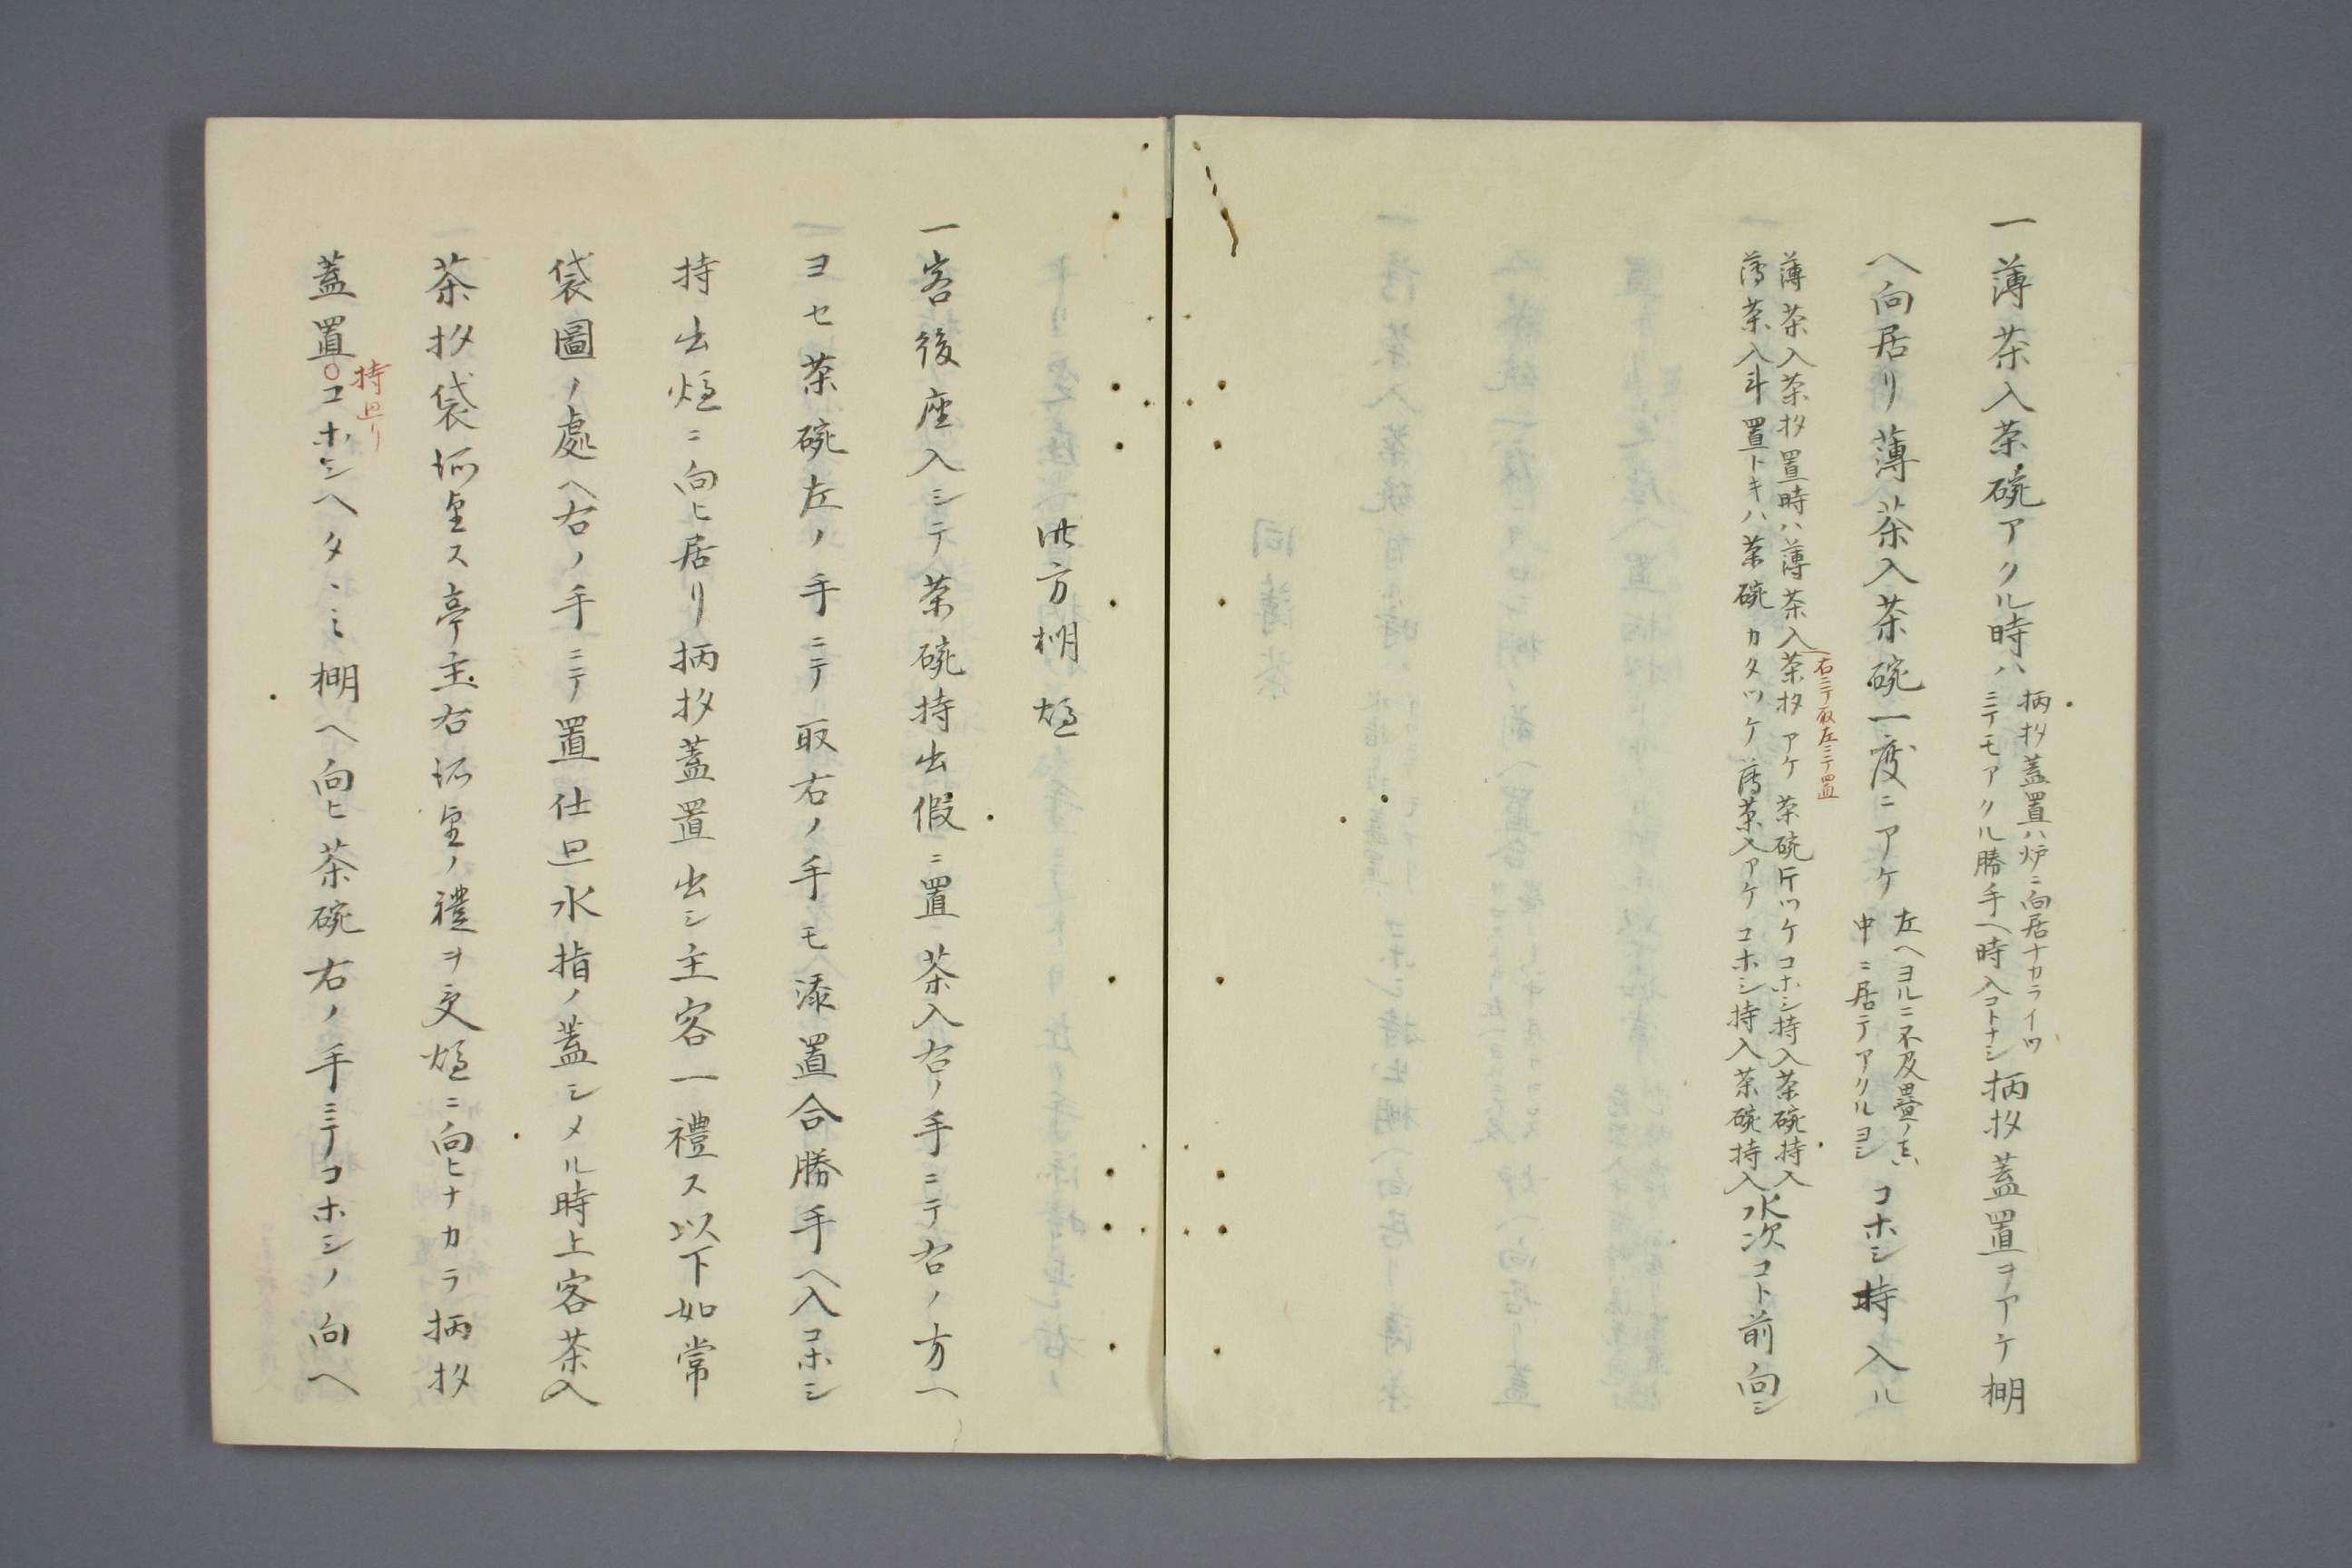 一薄茶入茶碗アクル時ハ
柄杓蓋置ハ炉ニ向居ナカライツ
ニテモアクル勝手ヘ時入コトナシ
柄杓蓋置ヲアケ棚
ヘ向居リ薄茶入茶碗一度ニアケ
左ヘヨルニ不及畳ノ真
中ニ居テアクルヨシ
コホシ持入ル
薄茶入茶杓置時ハ薄茶入茶杓アケ茶碗片ツケコホシ持入茶碗持入
右ニテ取左ニテ置
薄茶入斗置トキハ茶碗カタツケ薄茶入アケコホシ持入茶碗持入
水次コト前向シ
此方棚爐
一客後座入シテ茶碗持出假ニ置茶入右ノ手ニテ右ノ方ヘ
ヨセ茶碗左ノ手ニテ取右ノ手モ添置合勝手ヘ入コホシ
持出爐ニ向ヒ居リ柄杓蓋置出シ主客一禮ス以下如常
袋圖ノ處ヘ右ノ手ニテ置仕回水指ノ蓋シメル時上客茶入
茶杓袋所望ス亭主右所望ノ禮ヲ受爐ニ向ヒナカラ柄杓
蓋置コホシヘタヽミ棚ヘ向ヒ茶碗右ノ手ニテコホシノ向ヘ
持回リ